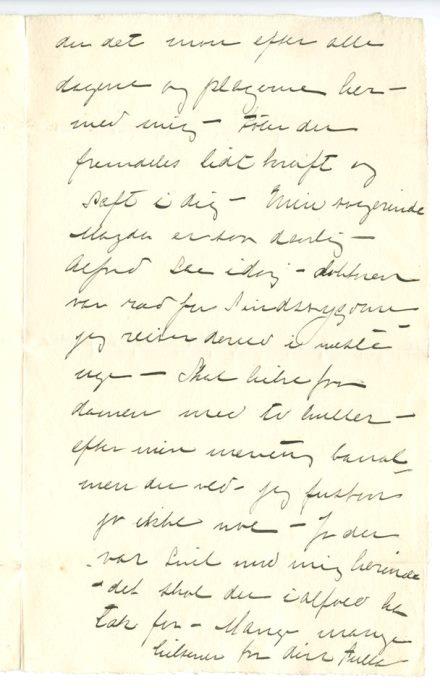 du det mon efter alle
dagene og plagerne her –
med mig – Føler du
fremdeles lidt kraft og
saft i dig – Min svigerinde
Magda er saa daarlig –
Alfred See idag – doktoren
var rad for Sindssygdom
jeg reiser derned i næste
uge – Skal hilse fra
damen med to huller –
efter min mening banal
men du ved – jeg
jo ikke noe – Ja du
var snil med mig herinde
– det skal du ialfald ha
tak for – Mange mange
hilsener fra din Tulla